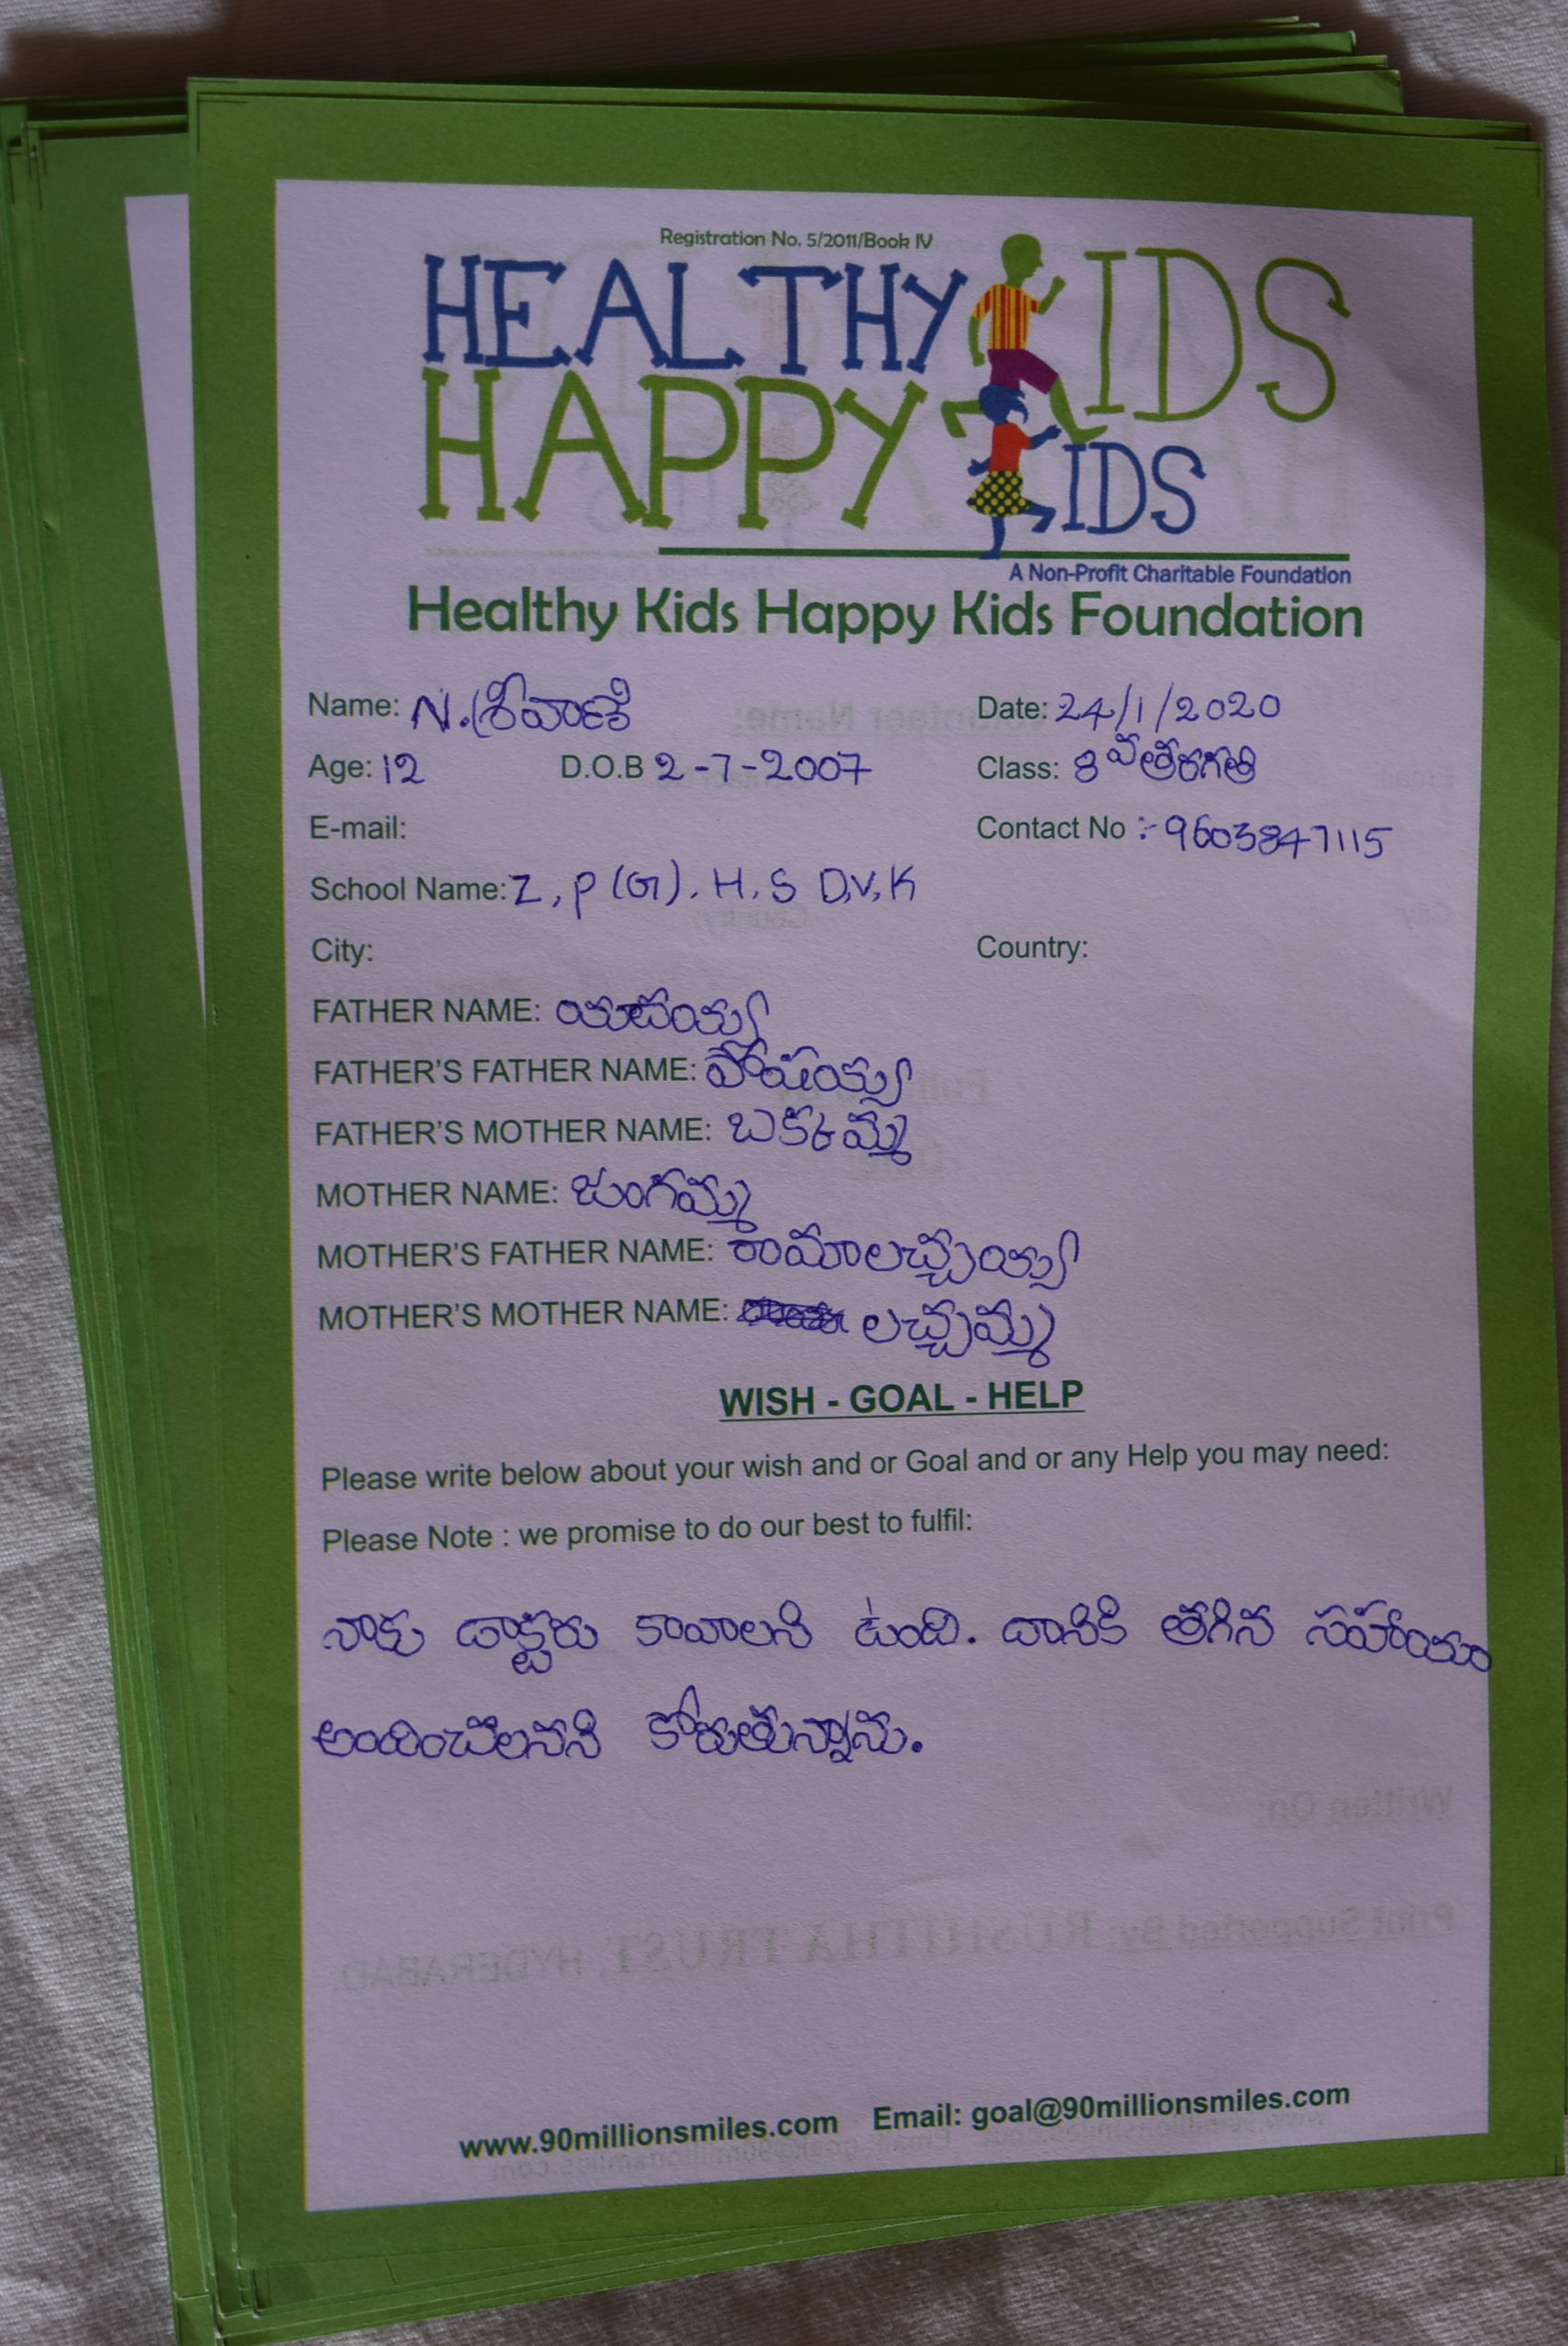 Registration No. 5/2011/Book IV
HEALTHY KIDS
HAPPY KIDS
A Non-Profit Charitable Foundation
Healthy Kids Happy Kids Foundation
Name: N.శ్రీవాణి Date: 24/1/2020
Age: 12 D.O.B 2-7-2007 Class: 8వతరగతి
E-mail: Contact No :- 9603847115
School Name: Z, P (G). H. S D,V,K
City: Country:
FATHER NAME: యాదయ్య
FATHER'S FATHER NAME: పోషయ్య
FATHER'S MOTHER NAME: బక్కమ్మ
MOTHER NAME: జంగమ్మ
MOTHER'S FATHER NAME: రామాలచ్చయ్య
MOTHER'S MOTHER NAME: లచ్చమ్మ
WISH - GOAL - HELP
Please write below about your wish and or Goal and or any Help you may need:
Please Note : we promise to do our best to fulfil:
నాకు డాక్టరు కావాలని ఉంది. దానికి తగిన సహాయం
కోరుతున్నాను.
www.90millionsmiles.com Email: goal@90millionsmiles.com